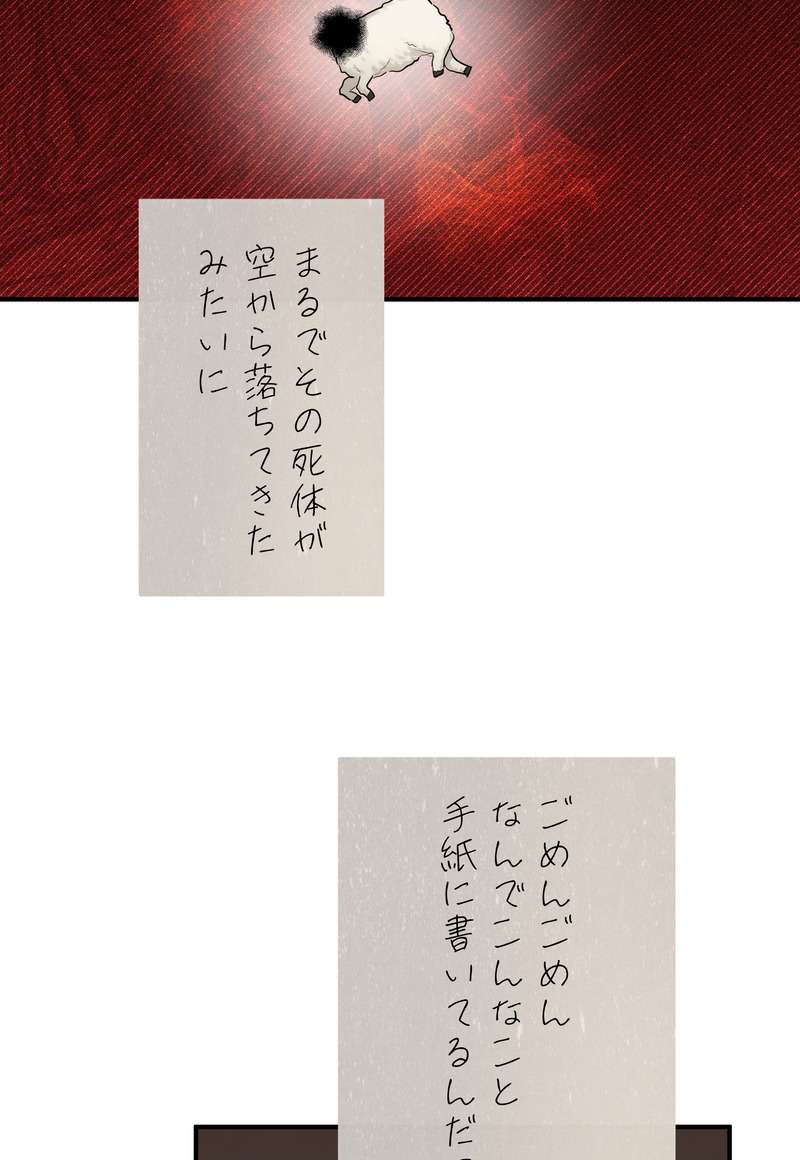 まるでその死体が
空から落ちてきた
みたいに
ごめんごめん
なんでこんなこと
手紙に書いてるんだ